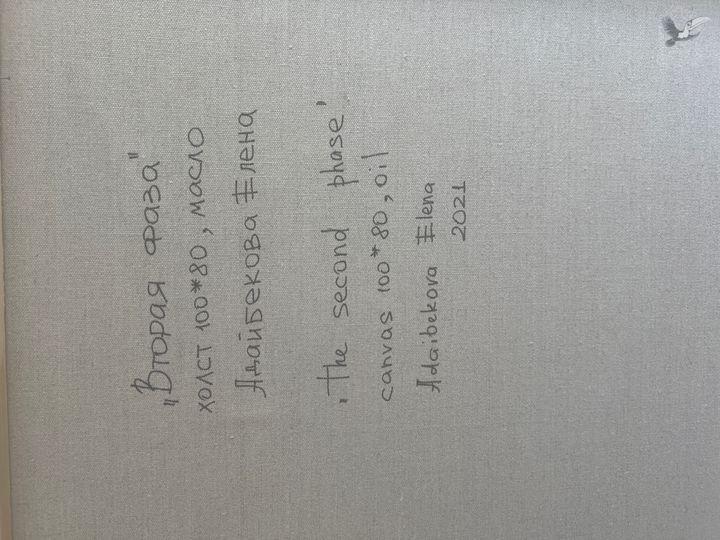 „Вторая фаза"
холст 100*80, масло
Адайбекова Елена
'The second phase'
canvas 100*80, oil
Adaibekova Elena
2021